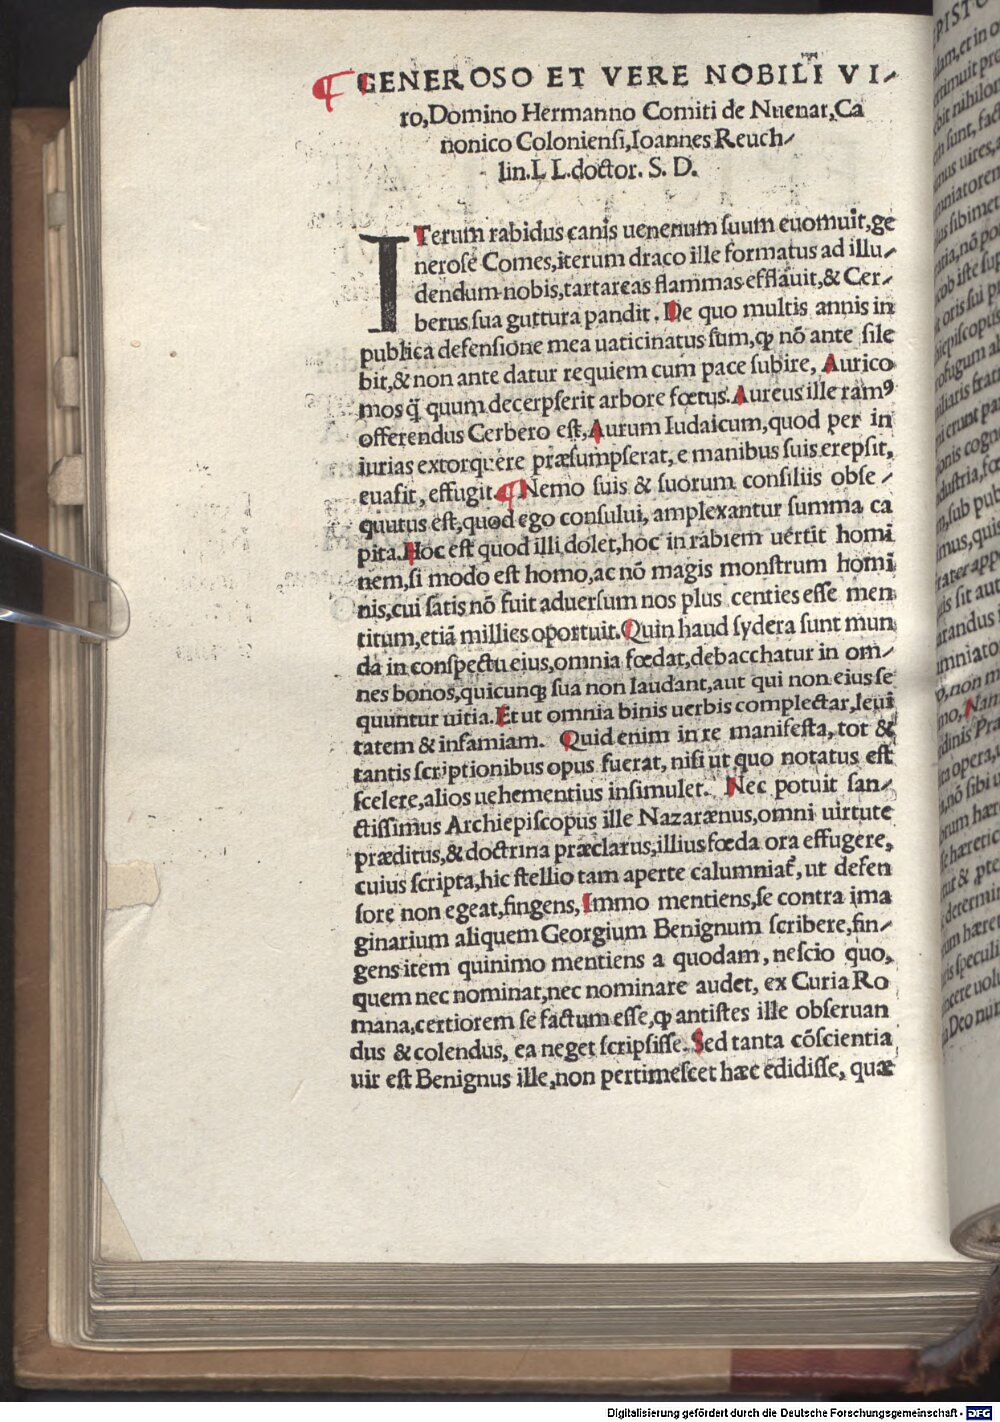 GENEROSO ET VERE NOBILI VI-
ro,Domino Hermanno Comiti de Nuenar,Ca
nonico Coloniensi,Ioannes Reuch-
lin.L L.doctor. S. D.
ITerum rabidus canis uenenum suum euomuit,ge
nerose Comes,iterum draco ille formatus ad illu-
dendum nobis,tartareas flammas efflauit,& Cer-
berus sua guttura pandit. De quo multis annis in
publica defensione mea uaticinatus sum,ꝙ nõ ante sile
bit,& non ante datur requiem cum pace subire, Aurico
mos q̃ quum decerpserit arbore fœtus.Aureus ille ramꝰ
offerendus Cerbero est,Aurum Iudaicum,quod per in
iurias extorquere præsumpserat, e manibus suis erepsit,
euasit, effugit. Nemo suis & suorum consiliis obse-
quutus est,quod ego consului, amplexantur summa ca
pita.Hoc est quod illi dolet,hoc in rabiem uertit homi
nem,si modo est homo,ac nõ magis monstrum homi
nis,cui satis nõ fuit aduersum nos plus centies esse men
titum,etiã millies oportuit.Quin haud sydera sunt mun
da in conspectu eius,omnia fœdat,debacchatur in om-
nes bonos,quicunqꝫ sua non laudant,aut qui non eius se
quuntur uitia.Et ut omnia binis uerbis complectar,leui
tatem & infamiam. Quid enim in re manifesta, tot &
tantis scriptionibus opus fuerat, nisi ut quo notatus est
scelere,alios uehementius insimulet. Nec potuit san-
ctissimus Archiepiscopus ille Nazarænus,omni uirtute
præditus,& doctrina præclarus,illius fœda ora effugere,
cuius scripta,hic stellio tam aperte calumniat᷑, ut defen
sore non egeat,fingens,Immo mentiens,se contra ima
ginarium aliquem Georgium Benignum scribere,fin-
gens item quinimo mentiens a quodam, nescio quo,
quem nec nominat,nec nominare audet, ex Curia Ro
mana,certiorem se factum esse,ꝙ antistes ille obseruan
dus & colendus, ea neget scripsisse. Sed tanta cõscientia
uir est Benignus ille,non pertimescet hæc edidisse, quæ
Digitalisierung gefördert durch die Deutsche Forschungsgemeinschaft - DFG